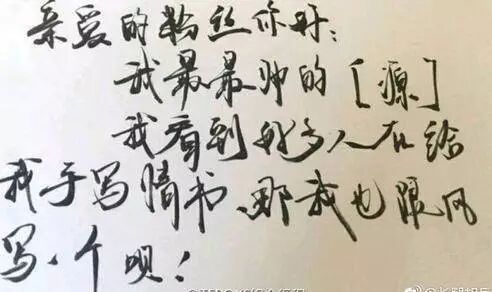 亲爱的粉丝你好：
我最最帅的[源]
我看到好多人在给
我手写情书、那我也跟风
写一个呗！